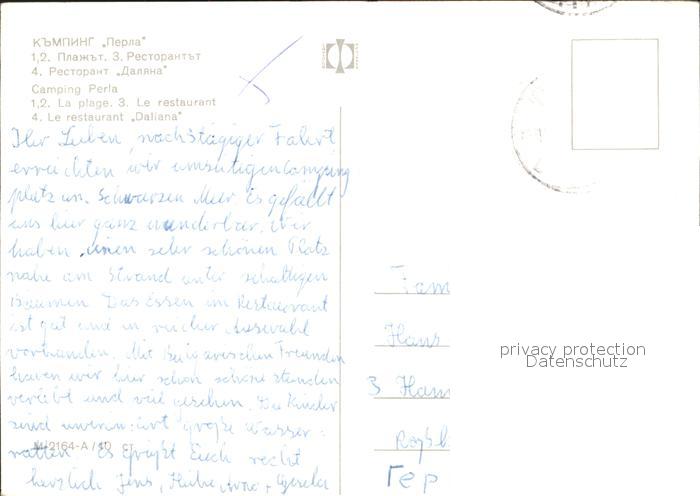 КЪМПИНГ „Перла"
1,2. Плажът. 3. Ресторантът
4. Ресторант „Даляна"
Camping Perla
1,2. La plage. 3. Le restaurant
4. Le restaurant „Daliana"
Ihr Lieben, nach 8tägiger Fahrt
erreichten wir umseitigen Camping
platz am Schwarzen Meer. Es gefällt
uns hier ganz wunderbar. Wir
haben einen sehr schönen Platz
nahe am Strand unter schattigen
Bäumen. Das Essen im Restaurant
ist gut und in reicher Auswahl
vorhanden. Mit Bulgarischen Freunden
haben wir hier schon schöne Stunden
verlebt und viel gesehen. Die Kinder
sind große Wasser-
ratten. Es grüßt Euch recht
herzlich Jens, + Gisela
M-2164-A/10 ст.
Fam
Hans
3 Ham
Гер
privacy protection
Datenschutz